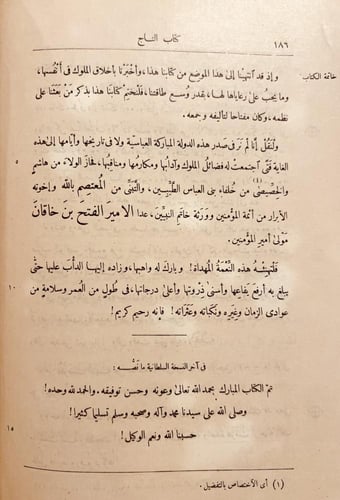 ١٨٦ كتاب التاج
خاتمة الكتاب
وإذ قد انتهينا إلى هذا الموضع من كتابنا هذا، وأخبرنا بأخلاق الملوك فى أنفسها،
وما يجب على رعاياها لها، بقدر وسع طاقتنا، فلنختم كتابنا هذا بذكر من بعثنا على
نظمه، وكان مفتاحا لتأليفه وجمعه.
ولنقل إنا لم نر فى صدر هذه الدولة المباركة العباسية ولا فى تاريخها وأيامها إلى هذه
٥ الغاية فتى اجتمعت له فضائل الملوك وآدابها ومكارمها ومناقبها، فحاز الولاء من هاشم
والخصيصى (١) من خلفاء بنى العباس الطيبين، والتبنى من المعتصم بالله وإخوته
الأبرار من أئمة المؤمنين وورثة خاتم النبيين، عدا الأمير الفتح بن خاقان
مولى أمير المؤمنين.
فلتهنئه هذه النعمة المهداة! وبارك له واهبها، وزاده إليها الدأب عليها حتى
١٠ يبلغ به أرفع يفاعها وأسنى ذروتها وأعلى درجاتها، فى طول من العمر وسلامة من
عوادى الزمان وغيره ونكباته وعثراته! فإنه رحيم كريم!
فى آخر النسخة السلطانية ما نصه:
تم الكتاب المبارك بحمد الله تعالى وعونه وحسن توفيقه. والحمد لله وحده!
وصلى الله على سيدنا محمد وآله وصحبه وسلم تسليما كثيرا!
١٥ حسبنا الله ونعم الوكيل!
(١) أى الاختصاص بالتفضيل.